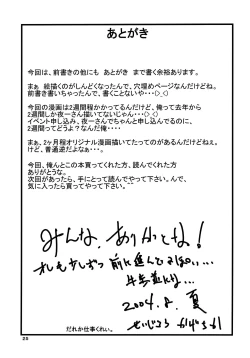 あとがき
今回は、前書きの他にも あとがき まで書く余裕あります。
まぁ 絵描くのがしんどくなったんで、穴埋めページなんだけどね。
前書き書いちゃったんで、書くことないや・・・(>_<)
今回の漫画は2週間程かかってるんだけど、俺って去年から
2週間しか夜一さん描いてないじゃん・・・(>_<)
イベント申し込み、夜一さんでちゃんと申し込んでるのに、
2週間ってどうよ？なんだ俺・・・・
まぁ、2ヶ月程オリジナル漫画描いてたってのがあるんだけどねぇ。
けど、普通逆だよなぁ・・・。
今回、俺んとこの本買ってくれた方、読んでくれた方
ありがとうな。
次回があったら、手にとって読んでやって下さい。んで、
気に入ったら買ってやって下さい。
みんな ありがとな!
オレも少しずつ前に進んでまぁ……
牛歩並にな…
2004.8.夏
だれか仕事くれぃ。
25